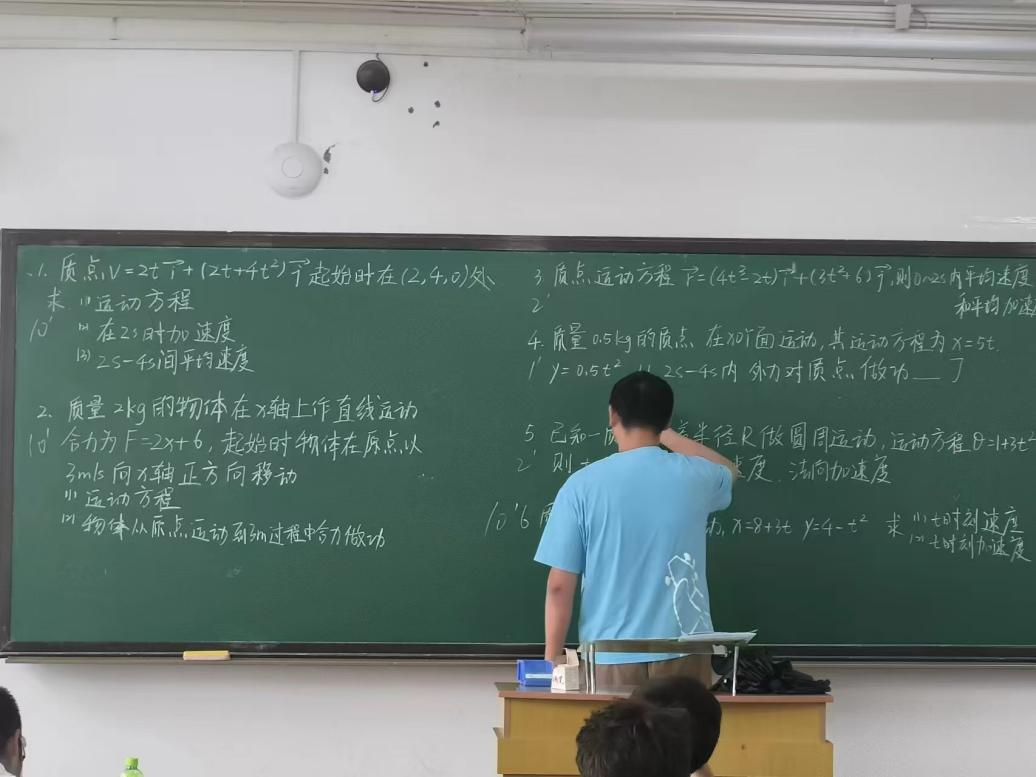 1. 质点 V=2t i⃗+(2t+4t²) j⃗ 起始时在(2,4,0)处
求 (1) 运动方程
10' (2) 在2s时加速度
(3) 2s-4s间平均速度
2. 质量2kg的物体在x轴上作直线运动
10' 合力为F=2x+6, 起始时物体在原点以
3m/s向x轴正方向移动
(1) 运动方程
(2) 物体从原点运动到3m过程中合力做功
3. 质点运动方程 r⃗=(4t²-2t) i⃗+(3t²+6) j⃗, 则0~2s内平均速度
2' 和平均加速
4. 质量0.5kg的质点 在xoy面运动, 其运动方程为x=5t,
1' y=0.5t² 2s-4s内 外力对质点做功__J
5 已知一 半径R做圆周运动, 运动方程θ=1+3t
2' 则 速度、法向加速度
10' 6 质 x=8+3t y=4-t² 求 (1) t时刻速度
(2) t时刻加速度